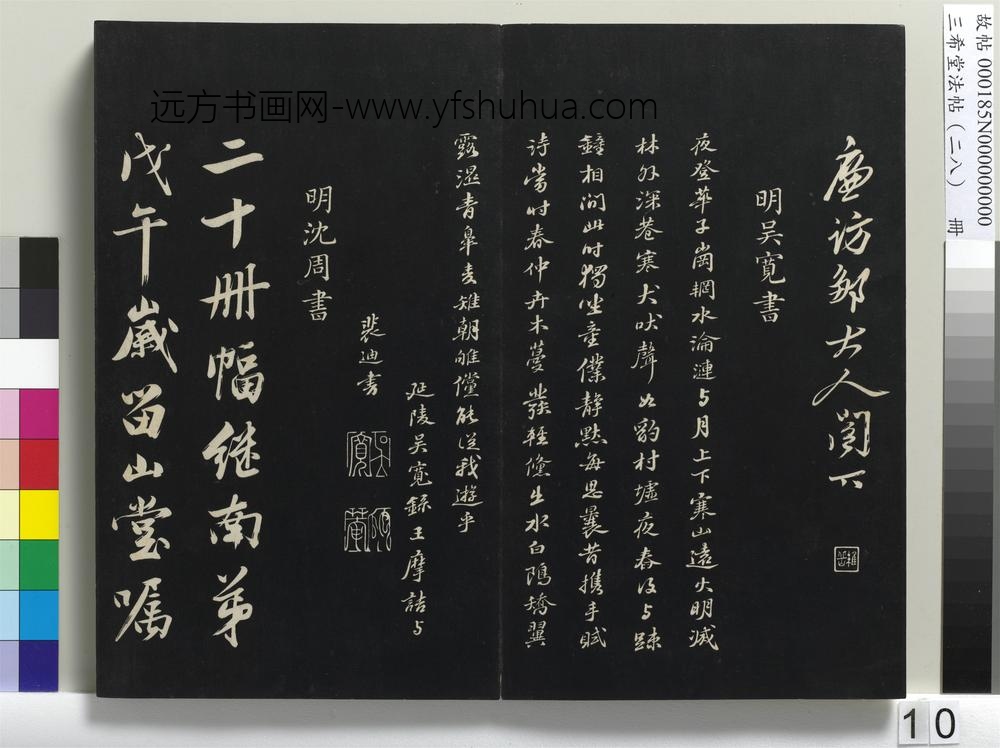 远方书画网-www.yfshuhua.com
故帖 000185N000000000
三希堂法帖（二八） 冊
廉訪鄒大人閣下
明吳寬書
夜登華子崗輞水淪漣与月上下寒山遠火明滅
林外深巷寒犬吠聲如豹村墟夜舂復与踈
鐘相間此时獨坐童僕静黙每思曩昔携手賦
詩當时春仲卉木蔓發輕鯈出水白鷗矯翼
露濕青皐麦雉朝雊儻能從我遊乎
延陵吳寬錄王摩詰与
裴迪書
吳寬
明沈周書
二十冊幅継南弟
戊午歲留山堂嘱
10